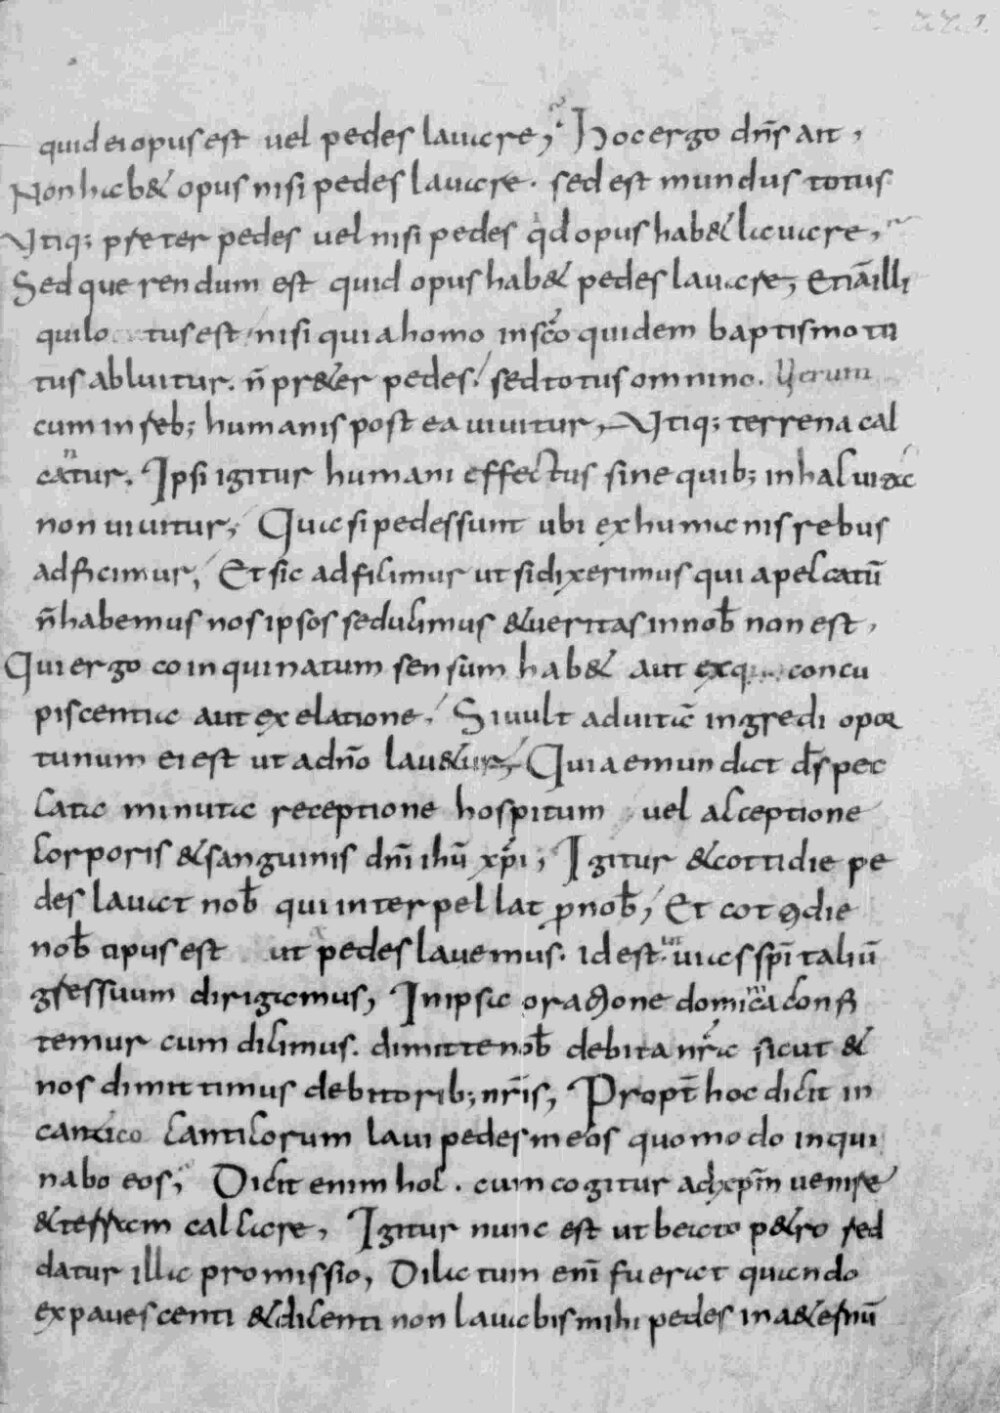 quid ei opus est vel pedes lavare; Hoc ergo dn̄s ait,
Non hab& opus nisi pedes lavare. sed est mundus totus
Utiq; preter pedes vel nisi pedes qd opus hab& lavare,
Sed querendum est quid opus hab& pedes lavare, Etiā illi
qui lo tus est nisi quia homo in sc̄o quidem baptismo to
tus abluitur. n̄ pr&er pedes, sed totus omnino. Verum
cum in reb; humanis post ea vivitur, Utiq; terrena cal
catur. Ipsi igitur humani effectus sine quib; in hac vita
non vivitur, Quasi pedes sunt ubi ex humanis rebus
adficimur, Et sic adficimur ut si dixerimus quia peccatū
n̄ habemus nos ipsos seducimus &veritas in nob̄ non est,
Qui ergo coinquinatum sensum hab& aut ex concu
piscentia aut ex elatione, Si vult ad vitā ingredi opor
tunum ei est ut a dn̄o lav&ur, Quia emundat dn̄s pec
cata minuta receptione hospitum vel acceptione
corporis &sanguinis dn̄i ihū xp̄i, Igitur &cottidie pe
des lavat nob̄ qui interpellat pnob̄, Et cottidie
nob̄ opus est ut pedes lavemus. id est vias sp̄italiū
gressuum dirigamus, In ipsa oratione dominica confi
temur cum dicimus. dimitte nob̄ debita nr̄a sicut &
nos dimittimus debitorib; nr̄is, Propt̄ hoc dicit in
cantico canticorum lavi pedes meos quomodo inqui
nabo eos, Dicit enim hoc. cum cogitur ad xp̄m venire
&terram calcare, Igitur nunc est ut beato p&ro red
datur illa promissio, Dictum enī fuerat quando
expavescenti &dicenti non lavabis mihi pedes in a&ernū